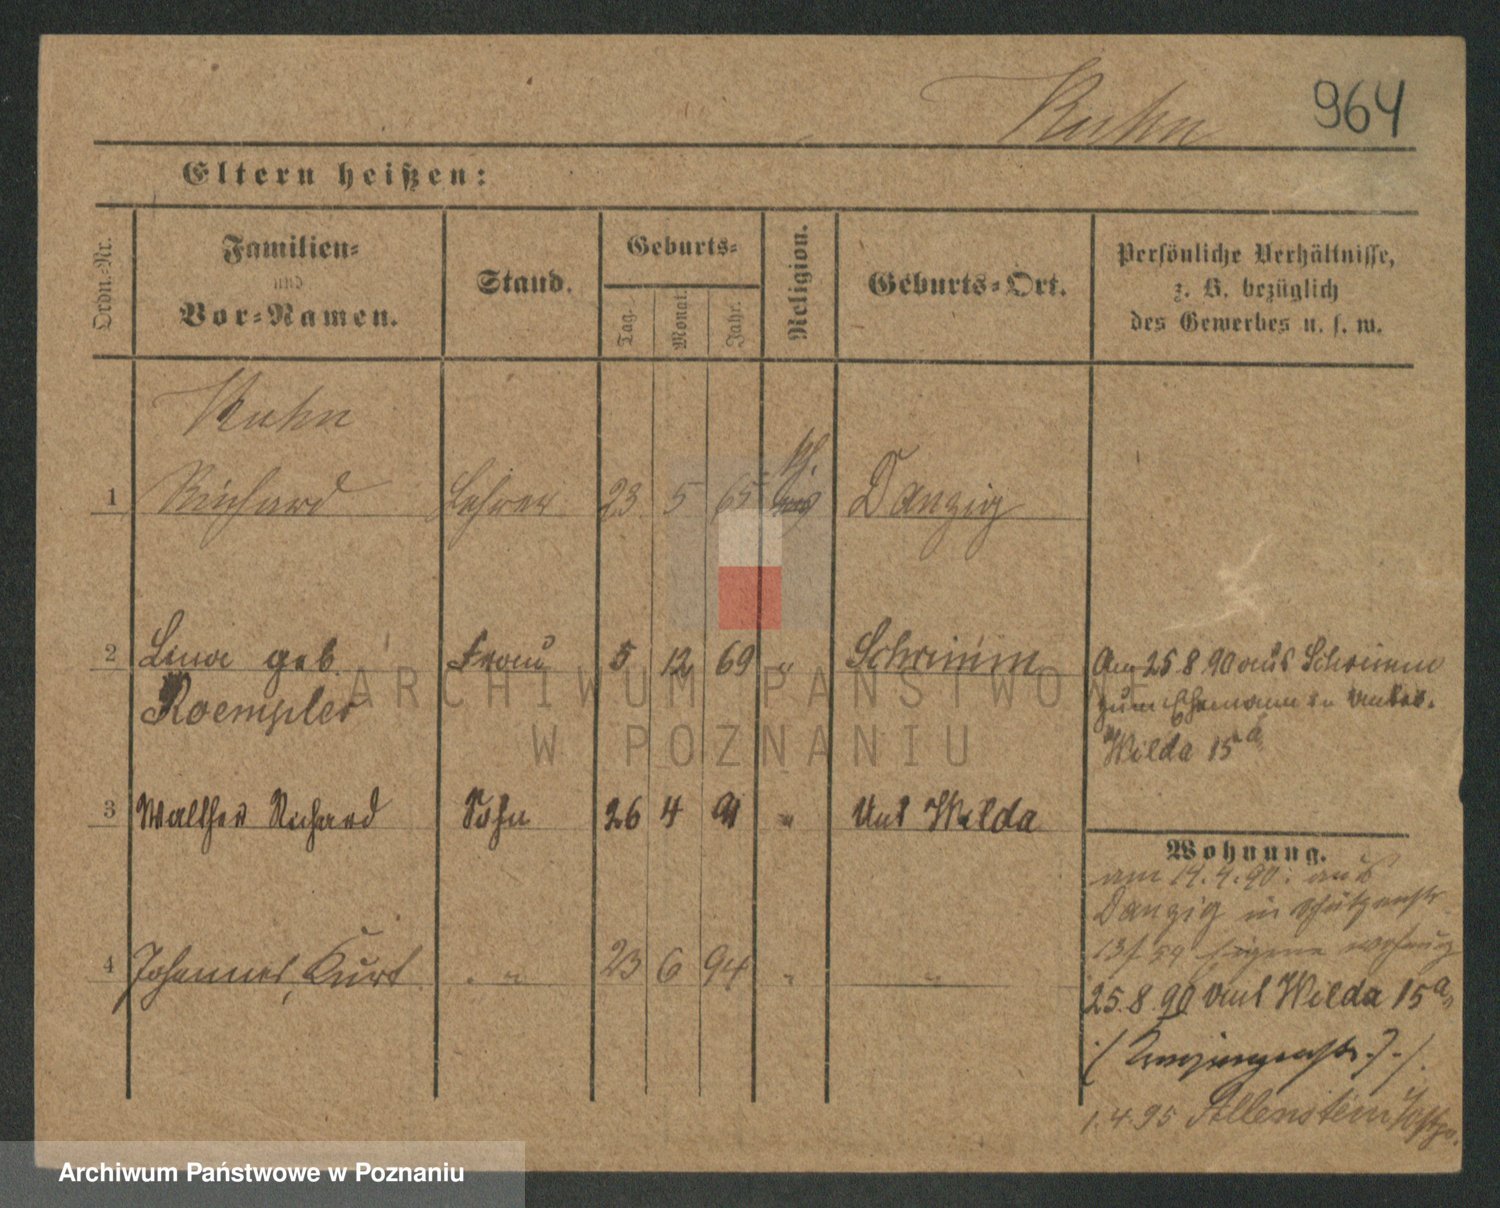 Kuhn 964
Eltern heißen:
Ordn.-Nr. Familien- und Vor-Namen. Stand. Geburts- Tag. Monat. Jahr. Religion. Geburts-Ort. Persönliche Verhältnisse, z. B. bezüglich des Gewerbes u. s. w.
Kuhn
1 Richard Lehrer 23 5 65 Danzig
2 Lina geb. Frau 5 12 69 " Schrimm Am 25.8.90 aus Schrimm
Roempler zum Ehemann Unter-
Wilda 15a
3 Walther Richard Sohn 26 4 91 " Unt Wilda
Wohnung.
am 14.4.90. aus
Danzig in Schützenstr
4 Johannes, Kurt " " 23 6 94 " "
25.8.90 Unt Wilda 15a
1.4.95 Allenstein
ARCHIWUM PAŃSTWOWE
W POZNANIU
Archiwum Państwowe w Poznaniu